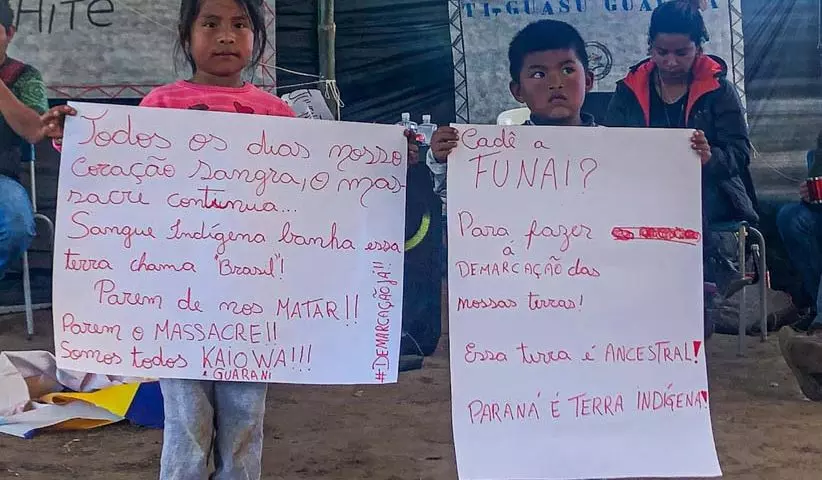 HITE
TI-GUASU GUA
Todos os dias nosso
coração sangra, o mas-
sacre continua...
Sangue Indígena banha essa
terra chama "Brasil"!
Parem de nos MATAR!!
Parem o MASSACRE!!
Somos todos KAIOWA!!!
GUARANI
#DEMARCAÇÃO JÁ!!
Cadê a
FUNAI?
Para fazer
á
DEMARCAÇÃO das
nossas terras!
Essa terra é ANCESTRAL!
PARANÁ É TERRA INDÍGENA!